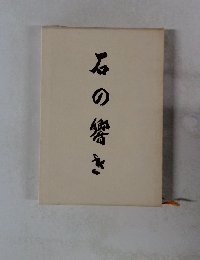 石の響き